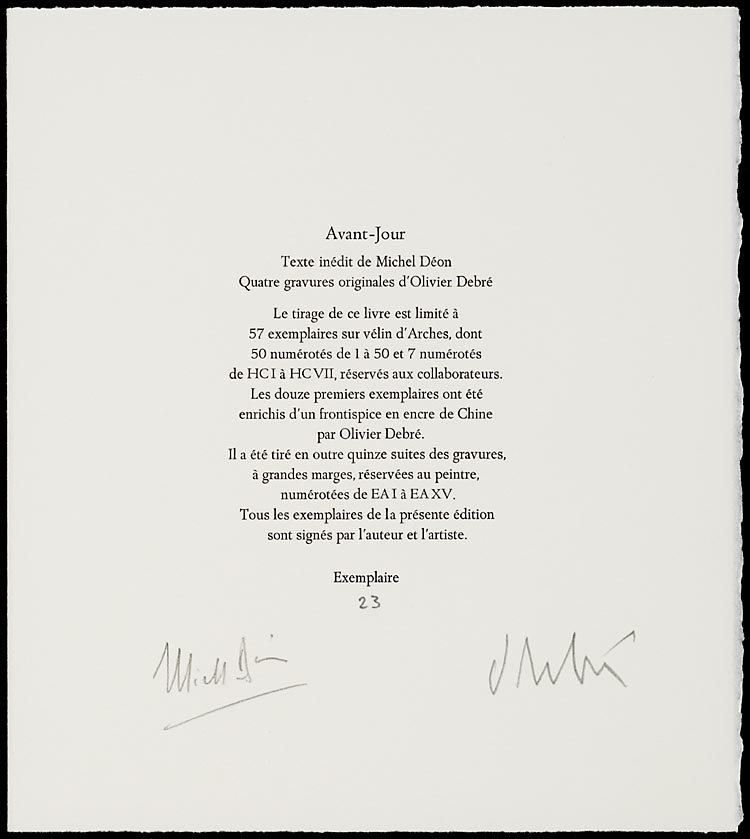 Avant-Jour
Texte inédit de Michel Déon
Quatre gravures originales d'Olivier Debré
Le tirage de ce livre est limité à
57 exemplaires sur vélin d'Arches, dont
50 numérotés de 1 à 50 et 7 numérotés
de HC I à HC VII, réservés aux collaborateurs.
Les douze premiers exemplaires ont été
enrichis d'un frontispice en encre de Chine
par Olivier Debré.
Il a été tiré en outre quinze suites des gravures,
à grandes marges, réservées au peintre,
numérotées de EA I à EA XV.
Tous les exemplaires de la présente édition
sont signés par l'auteur et l'artiste.
Exemplaire
23